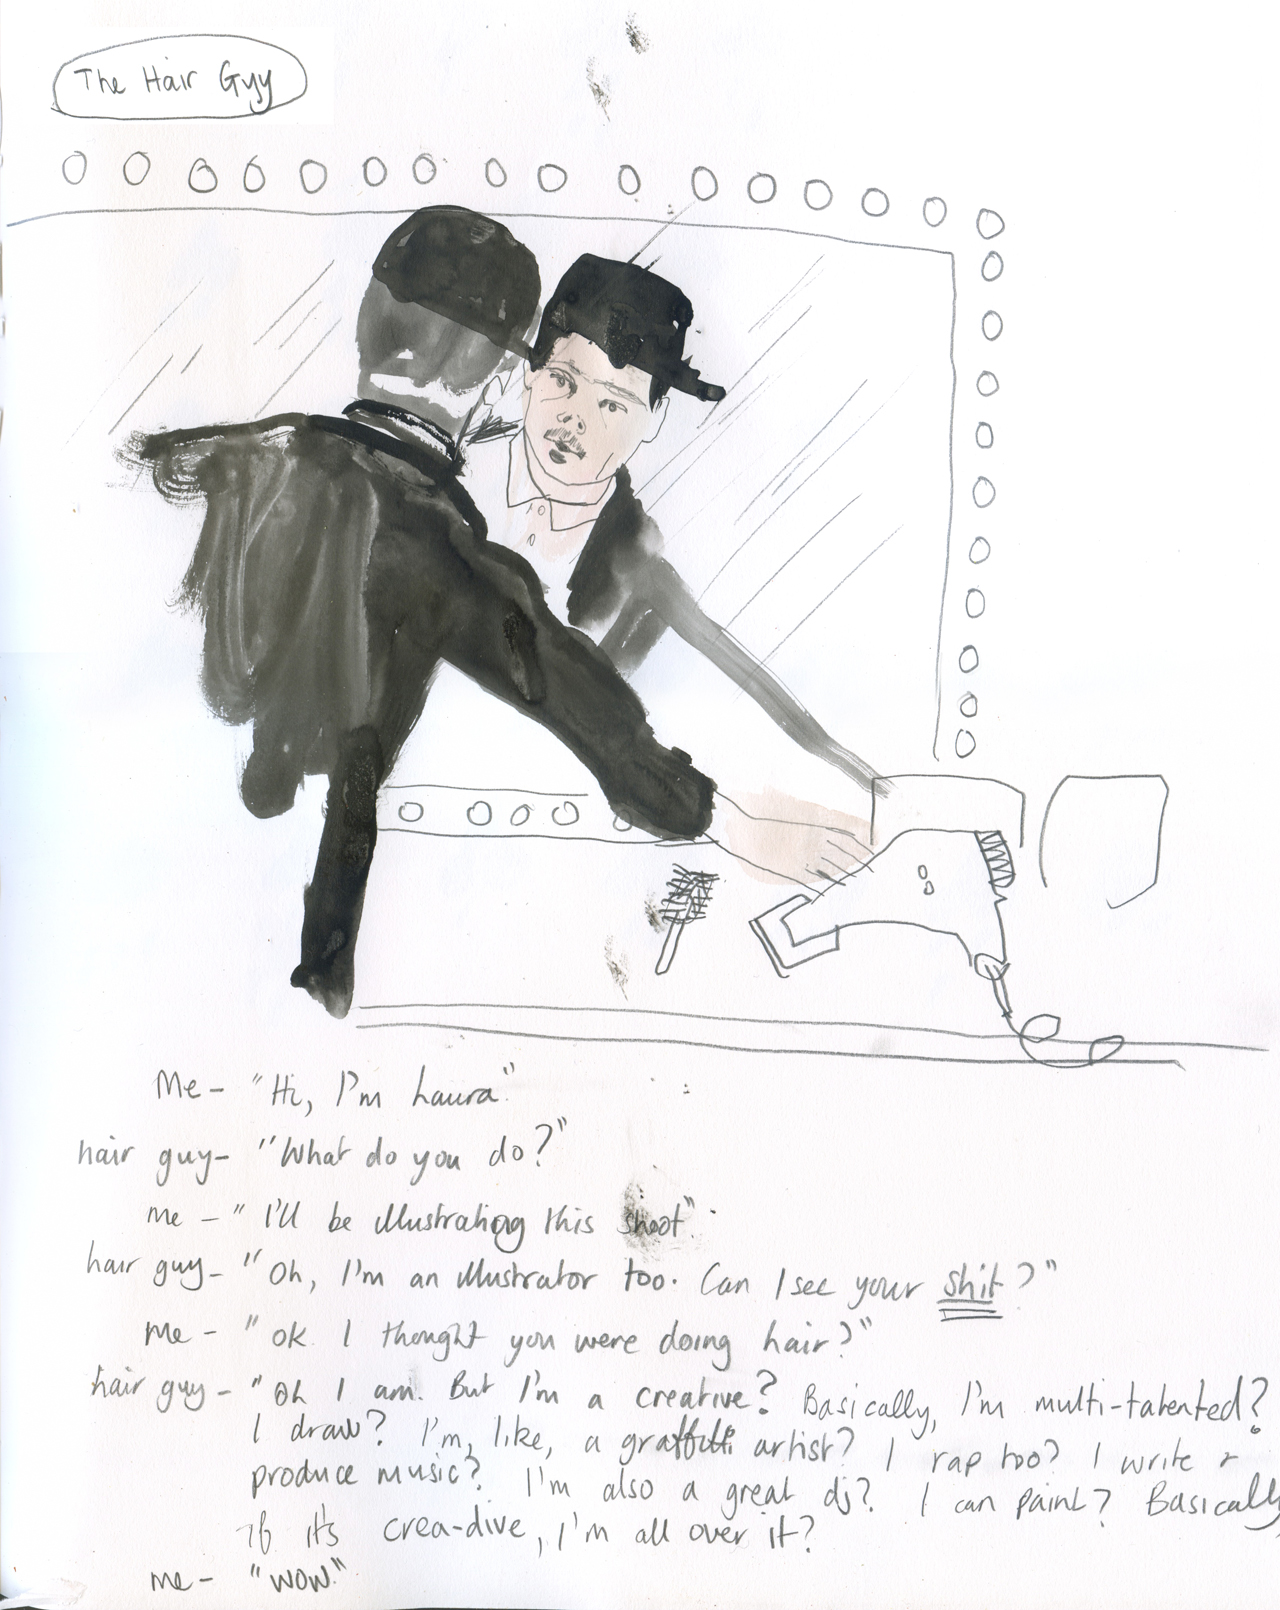 The Hair Guy
Me - "Hi, I'm Laura"
hair guy - "What do you do?"
me - "I'll be illustrating this shoot".
hair guy - "Oh, I'm an illustrator too. Can I see your shit?"
me - "ok. I thought you were doing hair?"
hair guy - "Oh I am. But I'm a creative? Basically, I'm multi-talented?
I draw? I'm, like, a graffiti artist? I rap too? I write &
produce music? I'm also a great dj? I can paint? Basically,
If it's crea-dive, I'm all over it?
me - "wow."